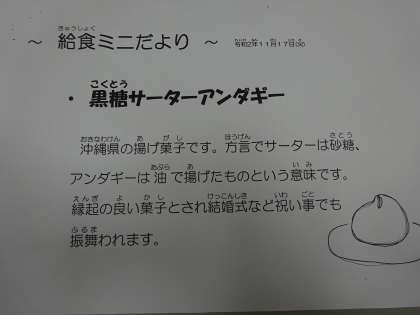 ～ 給食ミニだより ～ 令和2年11月17日(火)
・ 黒糖サーターアンダギー
沖縄県の揚げ菓子です。方言でサーターは砂糖、
アンダギーは油で揚げたものという意味です。
縁起の良い菓子とされ結婚式など祝い事でも
振舞われます。